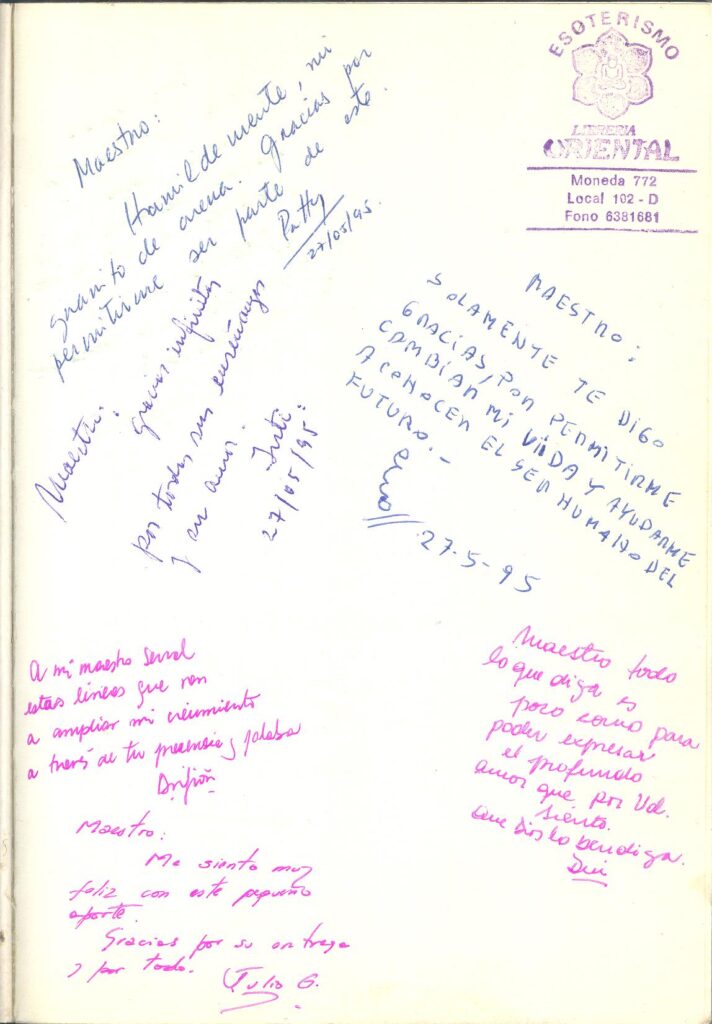 ESOTERISMO
LIBRERIA
ORIENTAL
Moneda 772
Local 102 - D
Fono 6381681
Maestro:
Humildemente, mi
granito de arena. Gracias por
permitirme ser parte de este.
Patty
27/05/95.
Maestro:
gracias infinitas
por todas sus enseñanzas
y su amor.
27/05/95
MAESTRO:
SOLAMENTE TE DIGO
GRACIAS, POR PERMITIRME
CAMBIAR MI VIIDA Y AYUDARME
A CONOCER EL SER HUMANO DEL
FUTURO.-
27-5-95
A mi maestro
estas líneas que van
a ampliar mi crecimiento
a través de tu presencia y palabra
Maestro todo
lo que diga es
poco como para
poder expresar
el profundo
amor que por Ud.
siento.
Que Dios lo bendiga.
Maestro:
Me siento muy
feliz con este pequeño
aporte.
Gracias por su entrega
y por todo.
Julio G.